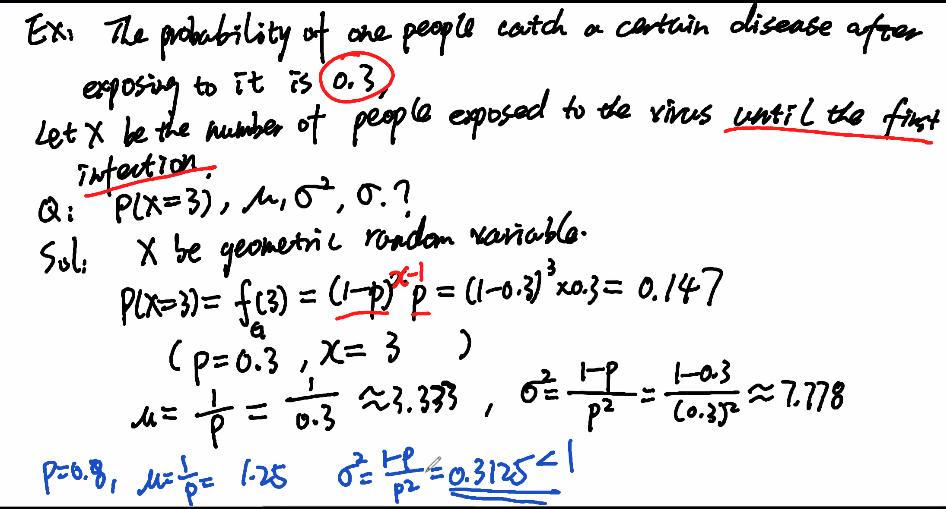 Ex: The probability of one people catch a certain disease after
exposing to it is 0.3,
Let X be the number of people exposed to the virus until the first
infection.
Q: P(X=3), μ, σ², σ.?
Sol: X be geometric random variable.
P(X=3) = f_G(3) = (1-p)^{x-1} p = (1-0.3)^3 × 0.3 = 0.147
(p=0.3, x=3)
μ = 1/p = 1/0.3 ≈ 3.333, σ² = (1-p)/p² = (1-0.3)/(0.3)² ≈ 7.778
p=0.8, μ = 1/p = 1.25 σ² = (1-p)/p² = 0.3125 < 1